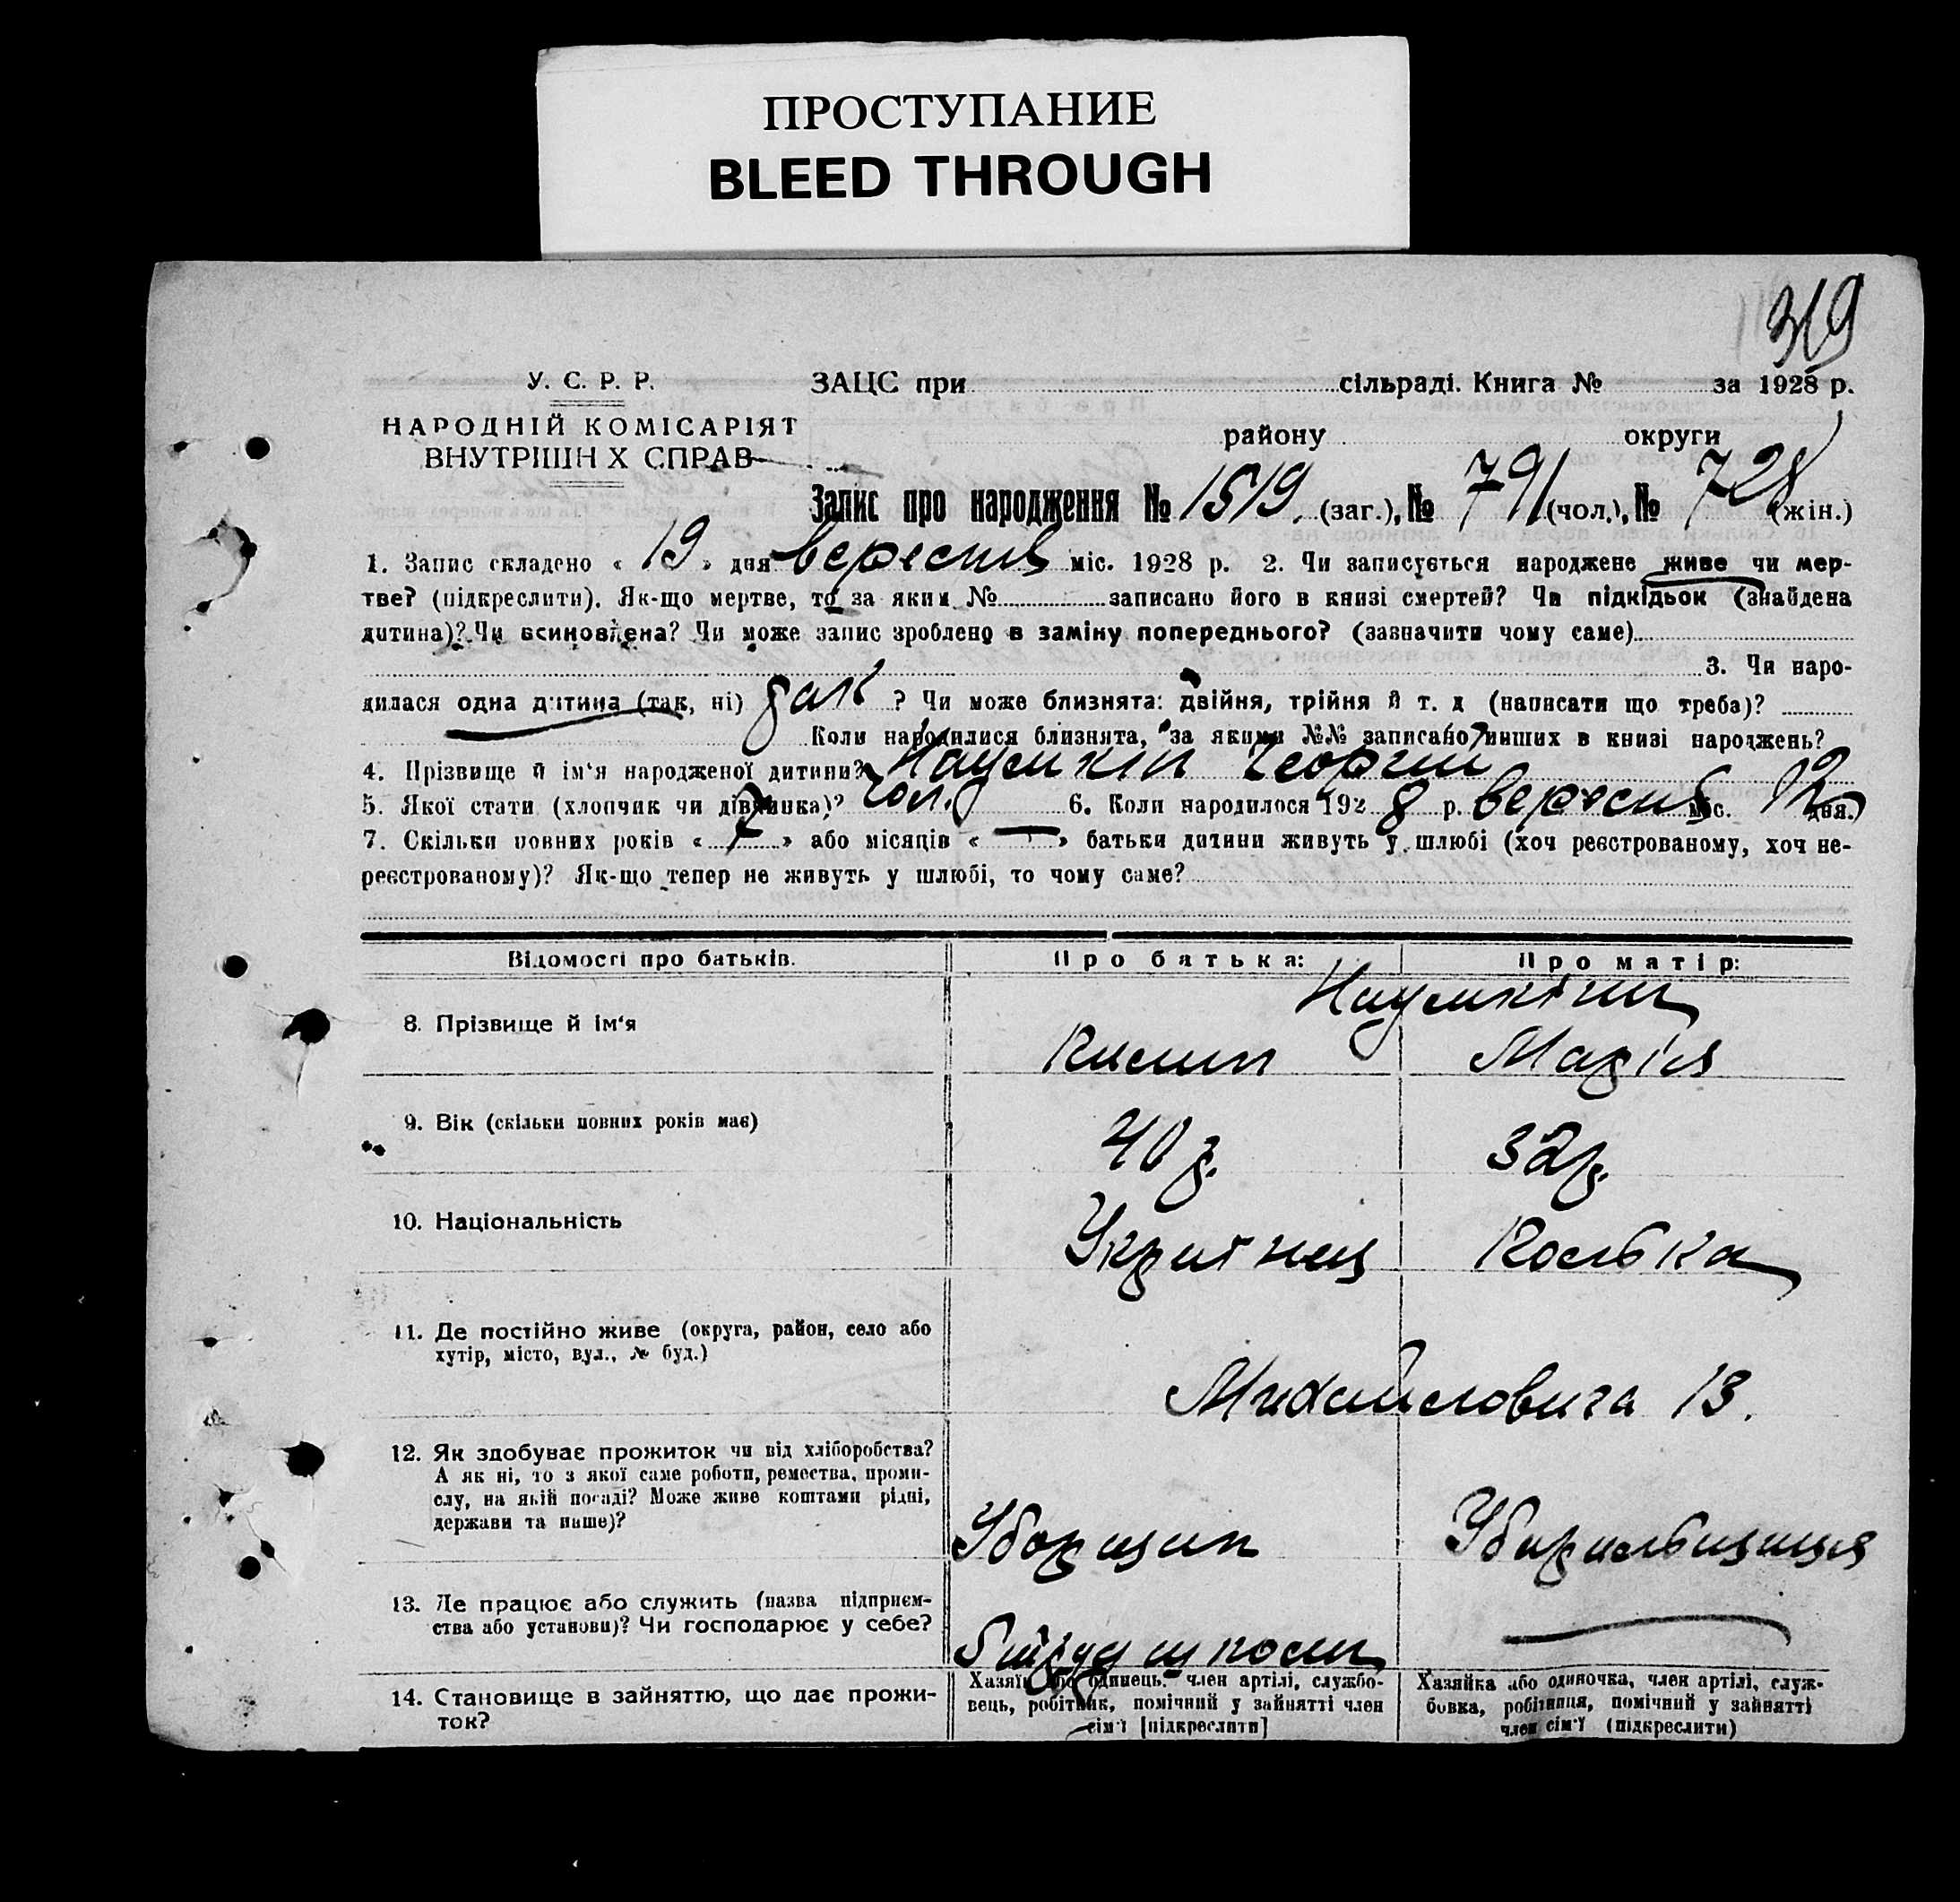 ПРОСТУПАНИЕ
BLEED THROUGH
319
У. С. Р. Р.
НАРОДНІЙ КОМІСАРІЯТ
ВНУТРІШН Х СПРАВ
ЗАЦС при сільраді. Книга № за 1928 р.
району округи
Запис про народження № 1519 (заг.), № 791 (чол.), № 728 (жін.)
1. Запис складено « 19 » дня вересня міс. 1928 р. 2. Чи записується народжене живе чи мер-
тве? (підкреслити). Як-що мертве, то за яким № записано його в книзі смертей? Чи підкідьок (знайдена
дитина)? Чи всиновлена? Чи може запис зроблено в заміну попереднього? (зазначити чому саме)
3. Чи наро-
дилася одна дитина (так, ні) так ? Чи може близнята: двійня, трійня й т. д (написати що треба)?
Коли народилися близнята, за якими №№ записано инших в книзі народжень?
4. Прізвище й ім'я народженої дитини? Наумкін Георгий
5. Якої стати (хлопчик чи дівчинка)? чол. 6. Коли народилося 192 8 р. вересня міс. 12 дня.
7. Скільки повних років « 7 » або місяців « — » батьки дитини живуть у шлюбі (хоч реєстрованому, хоч не-
реєстрованому)? Як-що тепер не живуть у шлюбі, то чому саме?
Відомості про батьків. Про батька: Про матір:
Наумкіни
8. Прізвище й ім'я Марія
9. Вік (скільки повних років має) 40 р. 32 р.
10. Національність Українец
11. Де постійно живе (округа, район, село або
хутір, місто, вул., № буд.)
Михайловича 13.
12. Як здобуває прожиток чи від хліборобства?
А як ні, то з якої саме роботи, ремества, проми-
слу, на якій посаді? Може живе коштами рідні,
держави та инше)?
Уборщик
13. Де працює або служить (назва підприєм-
ства або установи)? Чи господарює у себе?
14. Становище в зайняттю, що дає прожи-
ток?
Хазяїн або одинець. член артілі, службо-
вець, робітник, помічний у зайнятті член
сім'ї [підкреслити]
Хазяйка або одиночка, член артілі, служ-
бовка, робітниця, помічний у зайнятті
член сім'ї (підкреслити)